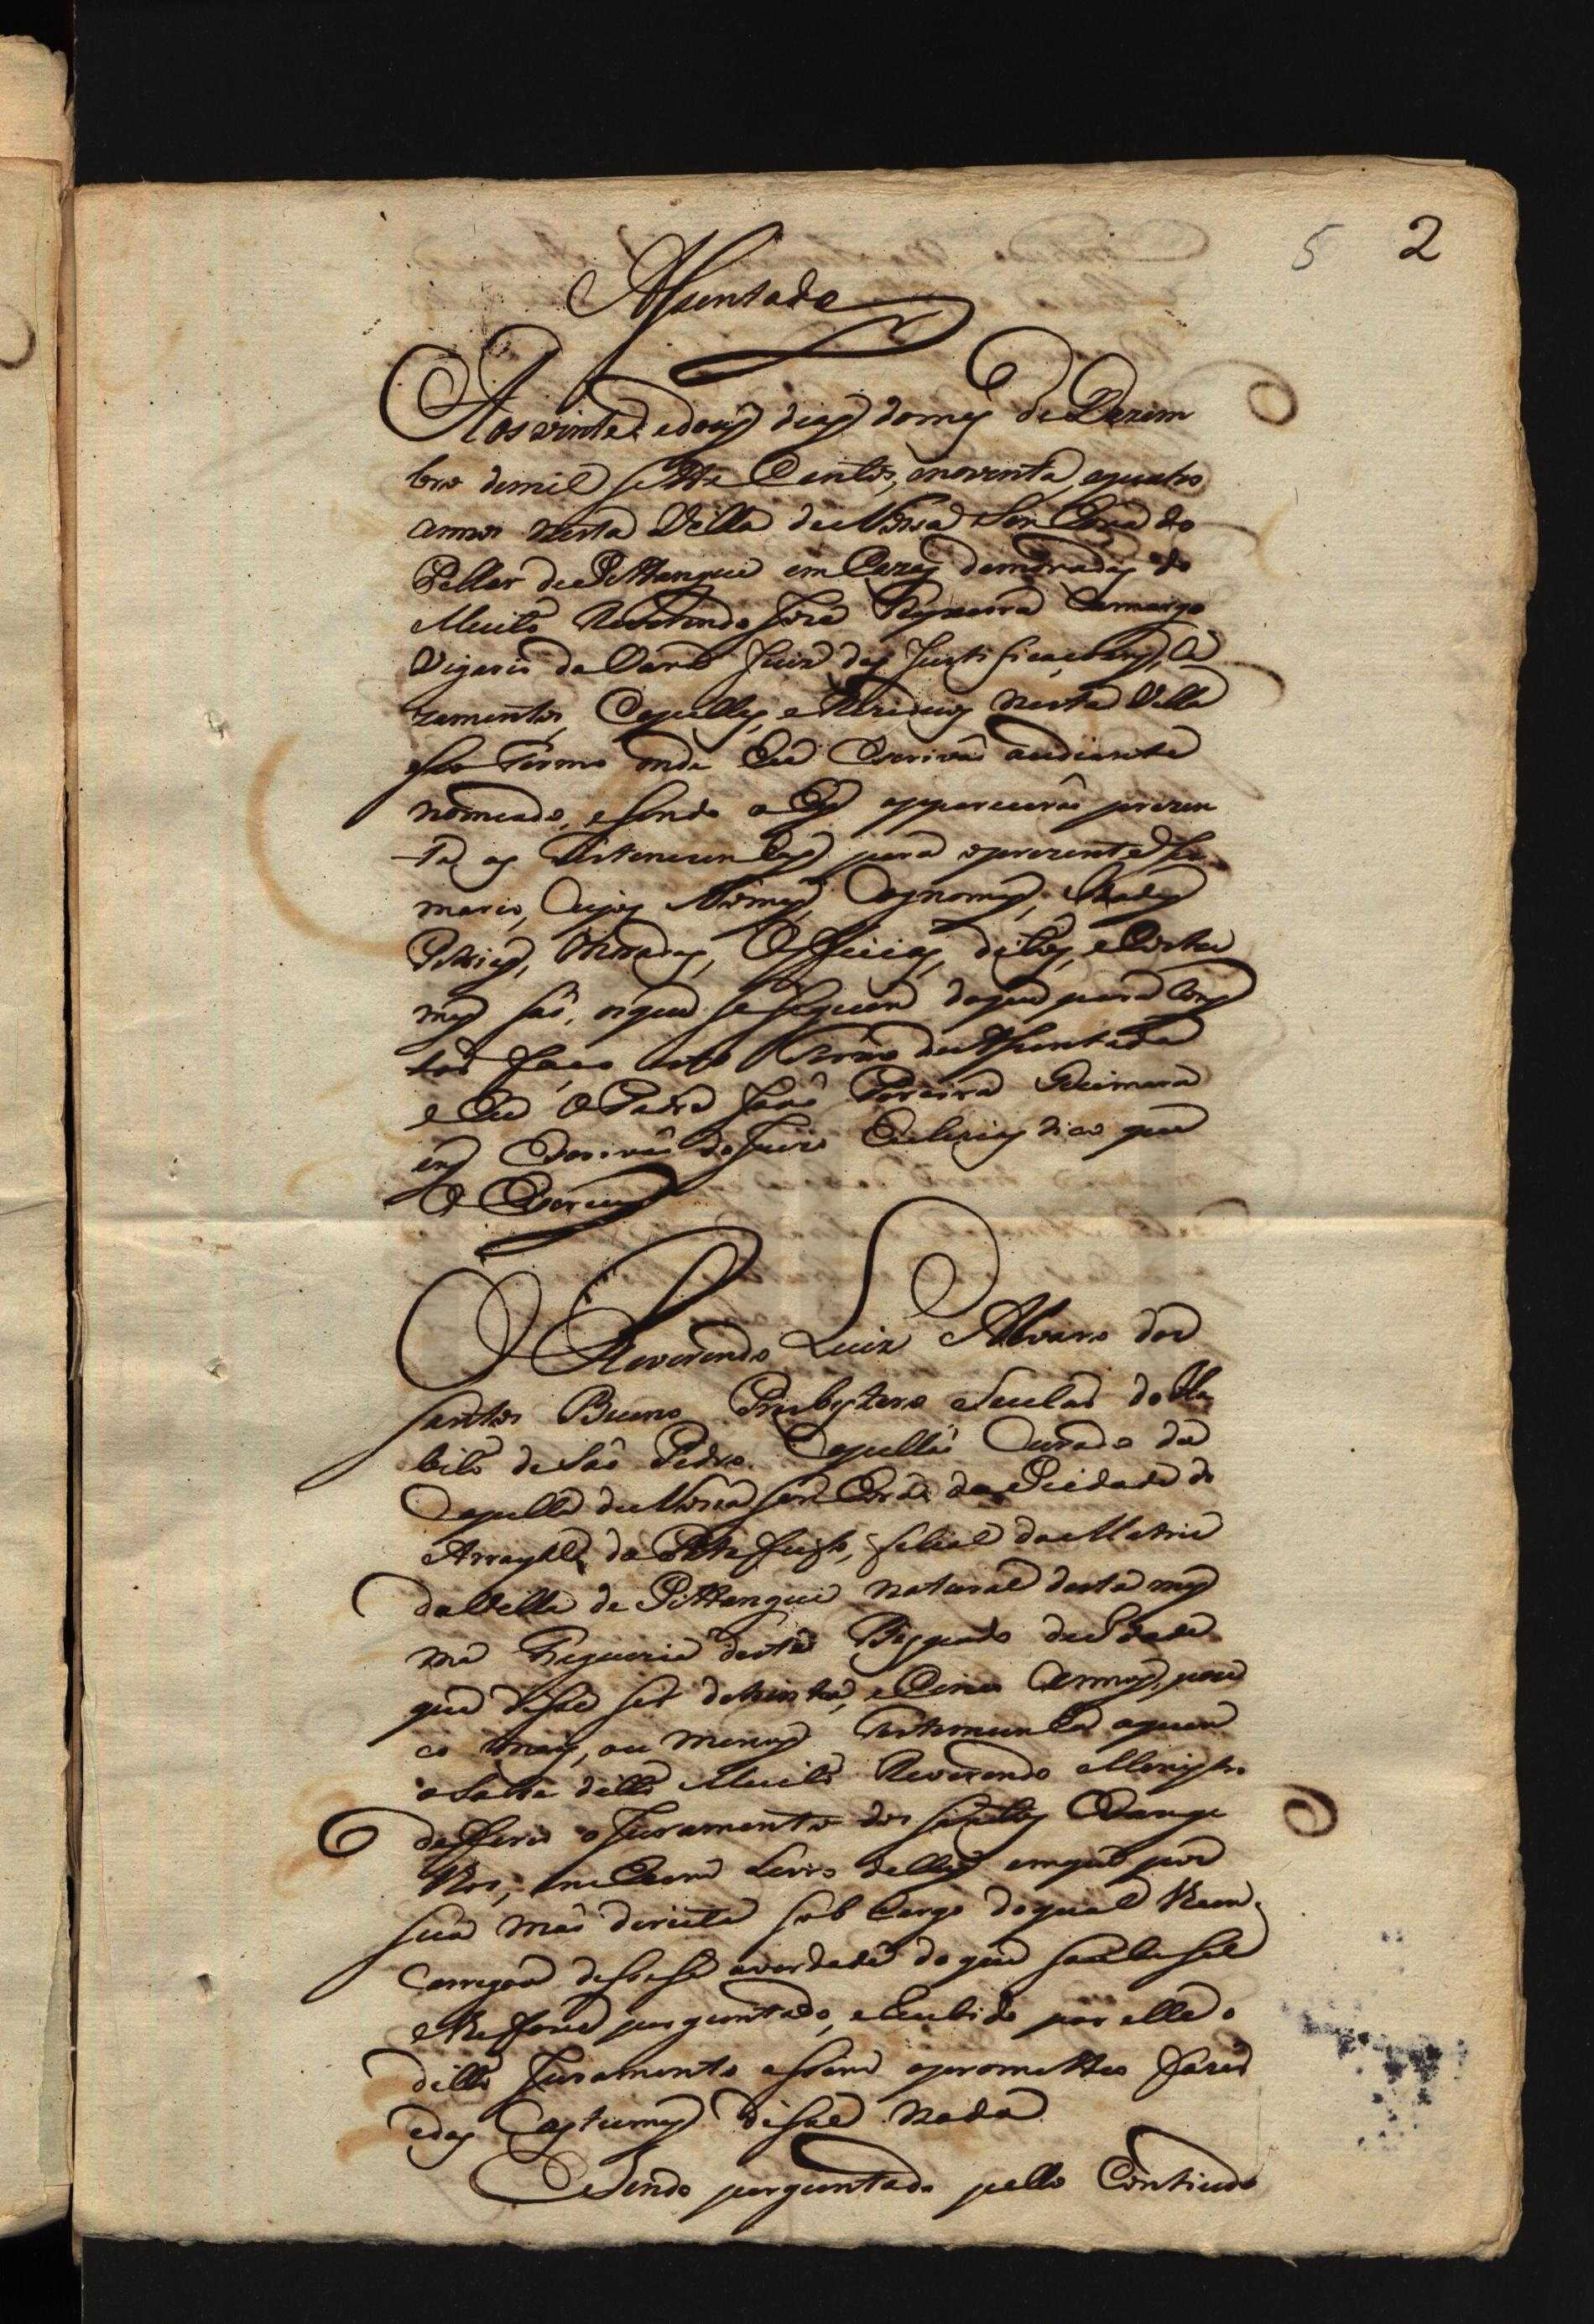 5 2
Assentada
Aos vinte, e dous dias do mes de Dezem
bro de mil sette Centos, e noventa, e quatro
annos nesta Villa de Nossa Senhora do
Pillar de Pittangui em Cazas de moradas do
Muito Reverendo José Camargo
Vigario da Vara Juiz das Justificaçoens, Ca
zamentos, Capellas, e Reziduos nesta Villa
e seo Termo onde Eu Escrivaõ aodiante
nomeado, e sendo ahy apparecerâo prezen
tes as Testemunhas para o prezente Su
mario, Cujos Nomes, Cognomes, Idades
Patrias, Moradas, Officios, dittos, e Costu
mes saô, os que se seguem do que para Cons
tar faço este Termo de Assentada
e Eu O Padre Joaõ Pereira Guimara
ens Escrivaõ do Juizo Eccleziastico que
O Escrevy
O Reverendo Luiz Alvares dos
Santos Bueno Presbytero Secular do Ha
bito de Saô Pedro Capellaô Curado da
Capella de Nossa Senhora da Piedade do
Arrayal do Patafufo, filial da Matriz
da Villa de Pittangui natural desta mes
ma Freguezia deste Bispado de Idade
que disse ser de trinta, e Cinco annos, pou
co mais, ou menos Testemunha a quem
o sobre ditto Muito Reverendo Menistro
defferio o Juramento dos Santos Evange
lhos, em hum Livro delles em que pos
sua maô direita sob Cargo do qual lhe en
Carregou dissesse a verdade do que soubesse
e lhe fosse perguntado, e recebido por elle o
ditto Juramento assim o prometteo fazer
e dos Costumes disse nada
E Sendo perguntado pello Contiudo